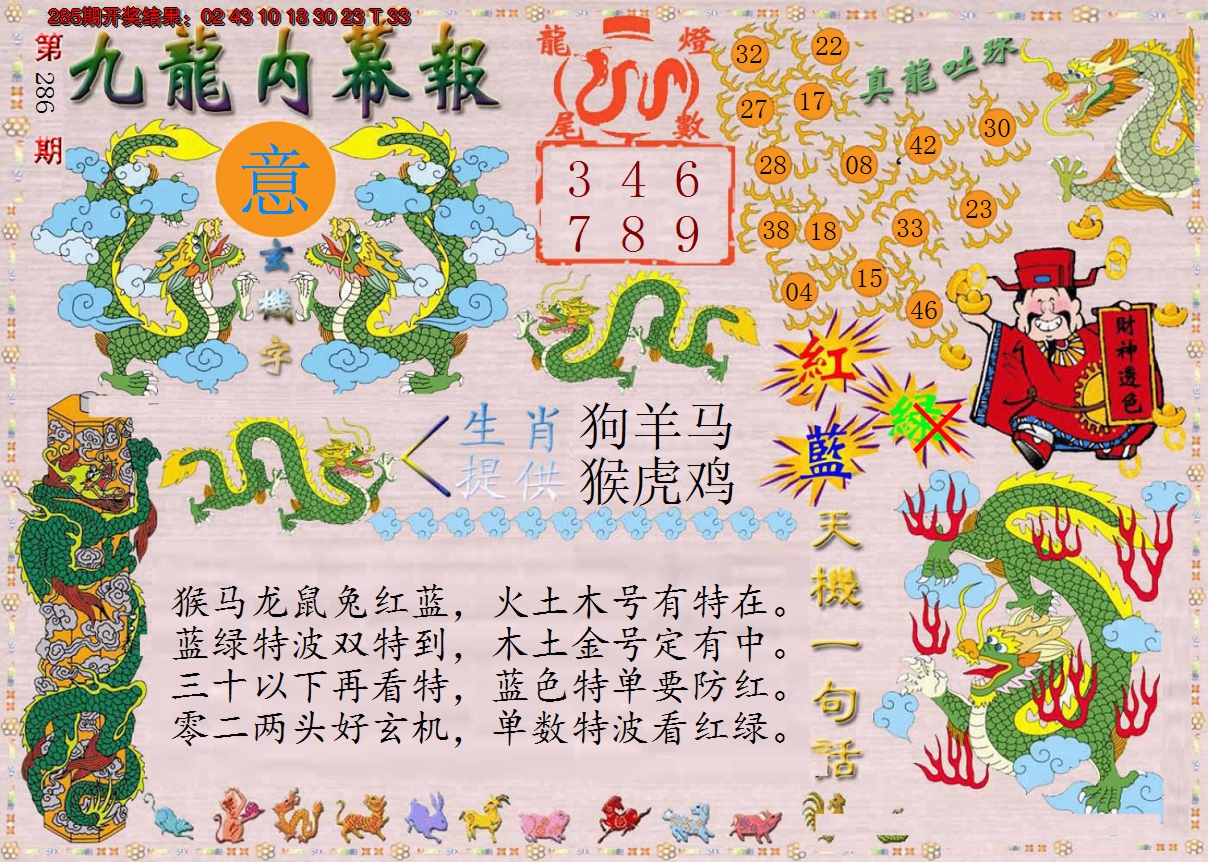 285期开奖结果：02 43 10 18 30 23 T 33
第286期
九龍内幕報
意
玄機字
龍燈尾數
3 4 6
7 8 9
真龍吐珠
32 22
27 17
28 08 42 30
38 18 33 23
04 15 46
紅
綠
藍
財神透色
生肖 狗羊马
提供 猴虎鸡
天機一句话
猴马龙鼠兔红蓝，火土木号有特在。
蓝绿特波双特到，木土金号定有中。
三十以下再看特，蓝色特单要防红。
零二两头好玄机，单数特波看红绿。